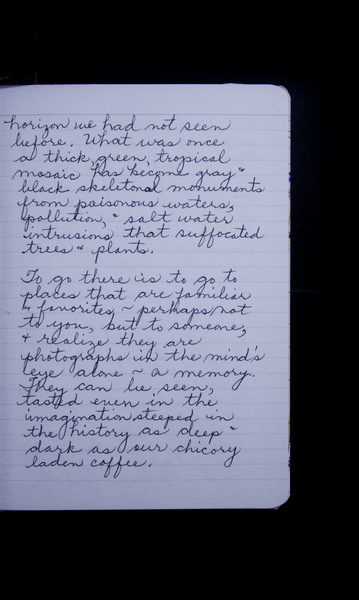 horizon we had not seen
before. What was once
a thick, green, tropical
mosaic has become gray &
black skeletonal monuments
from poisonous waters,
pollution, & salt water
intrusions that suffocated
trees & plants.
To go there is to go to
places that are familiar
& favorites, ~ perhaps not
to you, but to someone,
& realize they are
photographs in the mind's
eye alone ~ a memory.
They can be seen,
tasted even in the
imagination steeped in
the history as deep &
dark as our chicory
laden coffee.